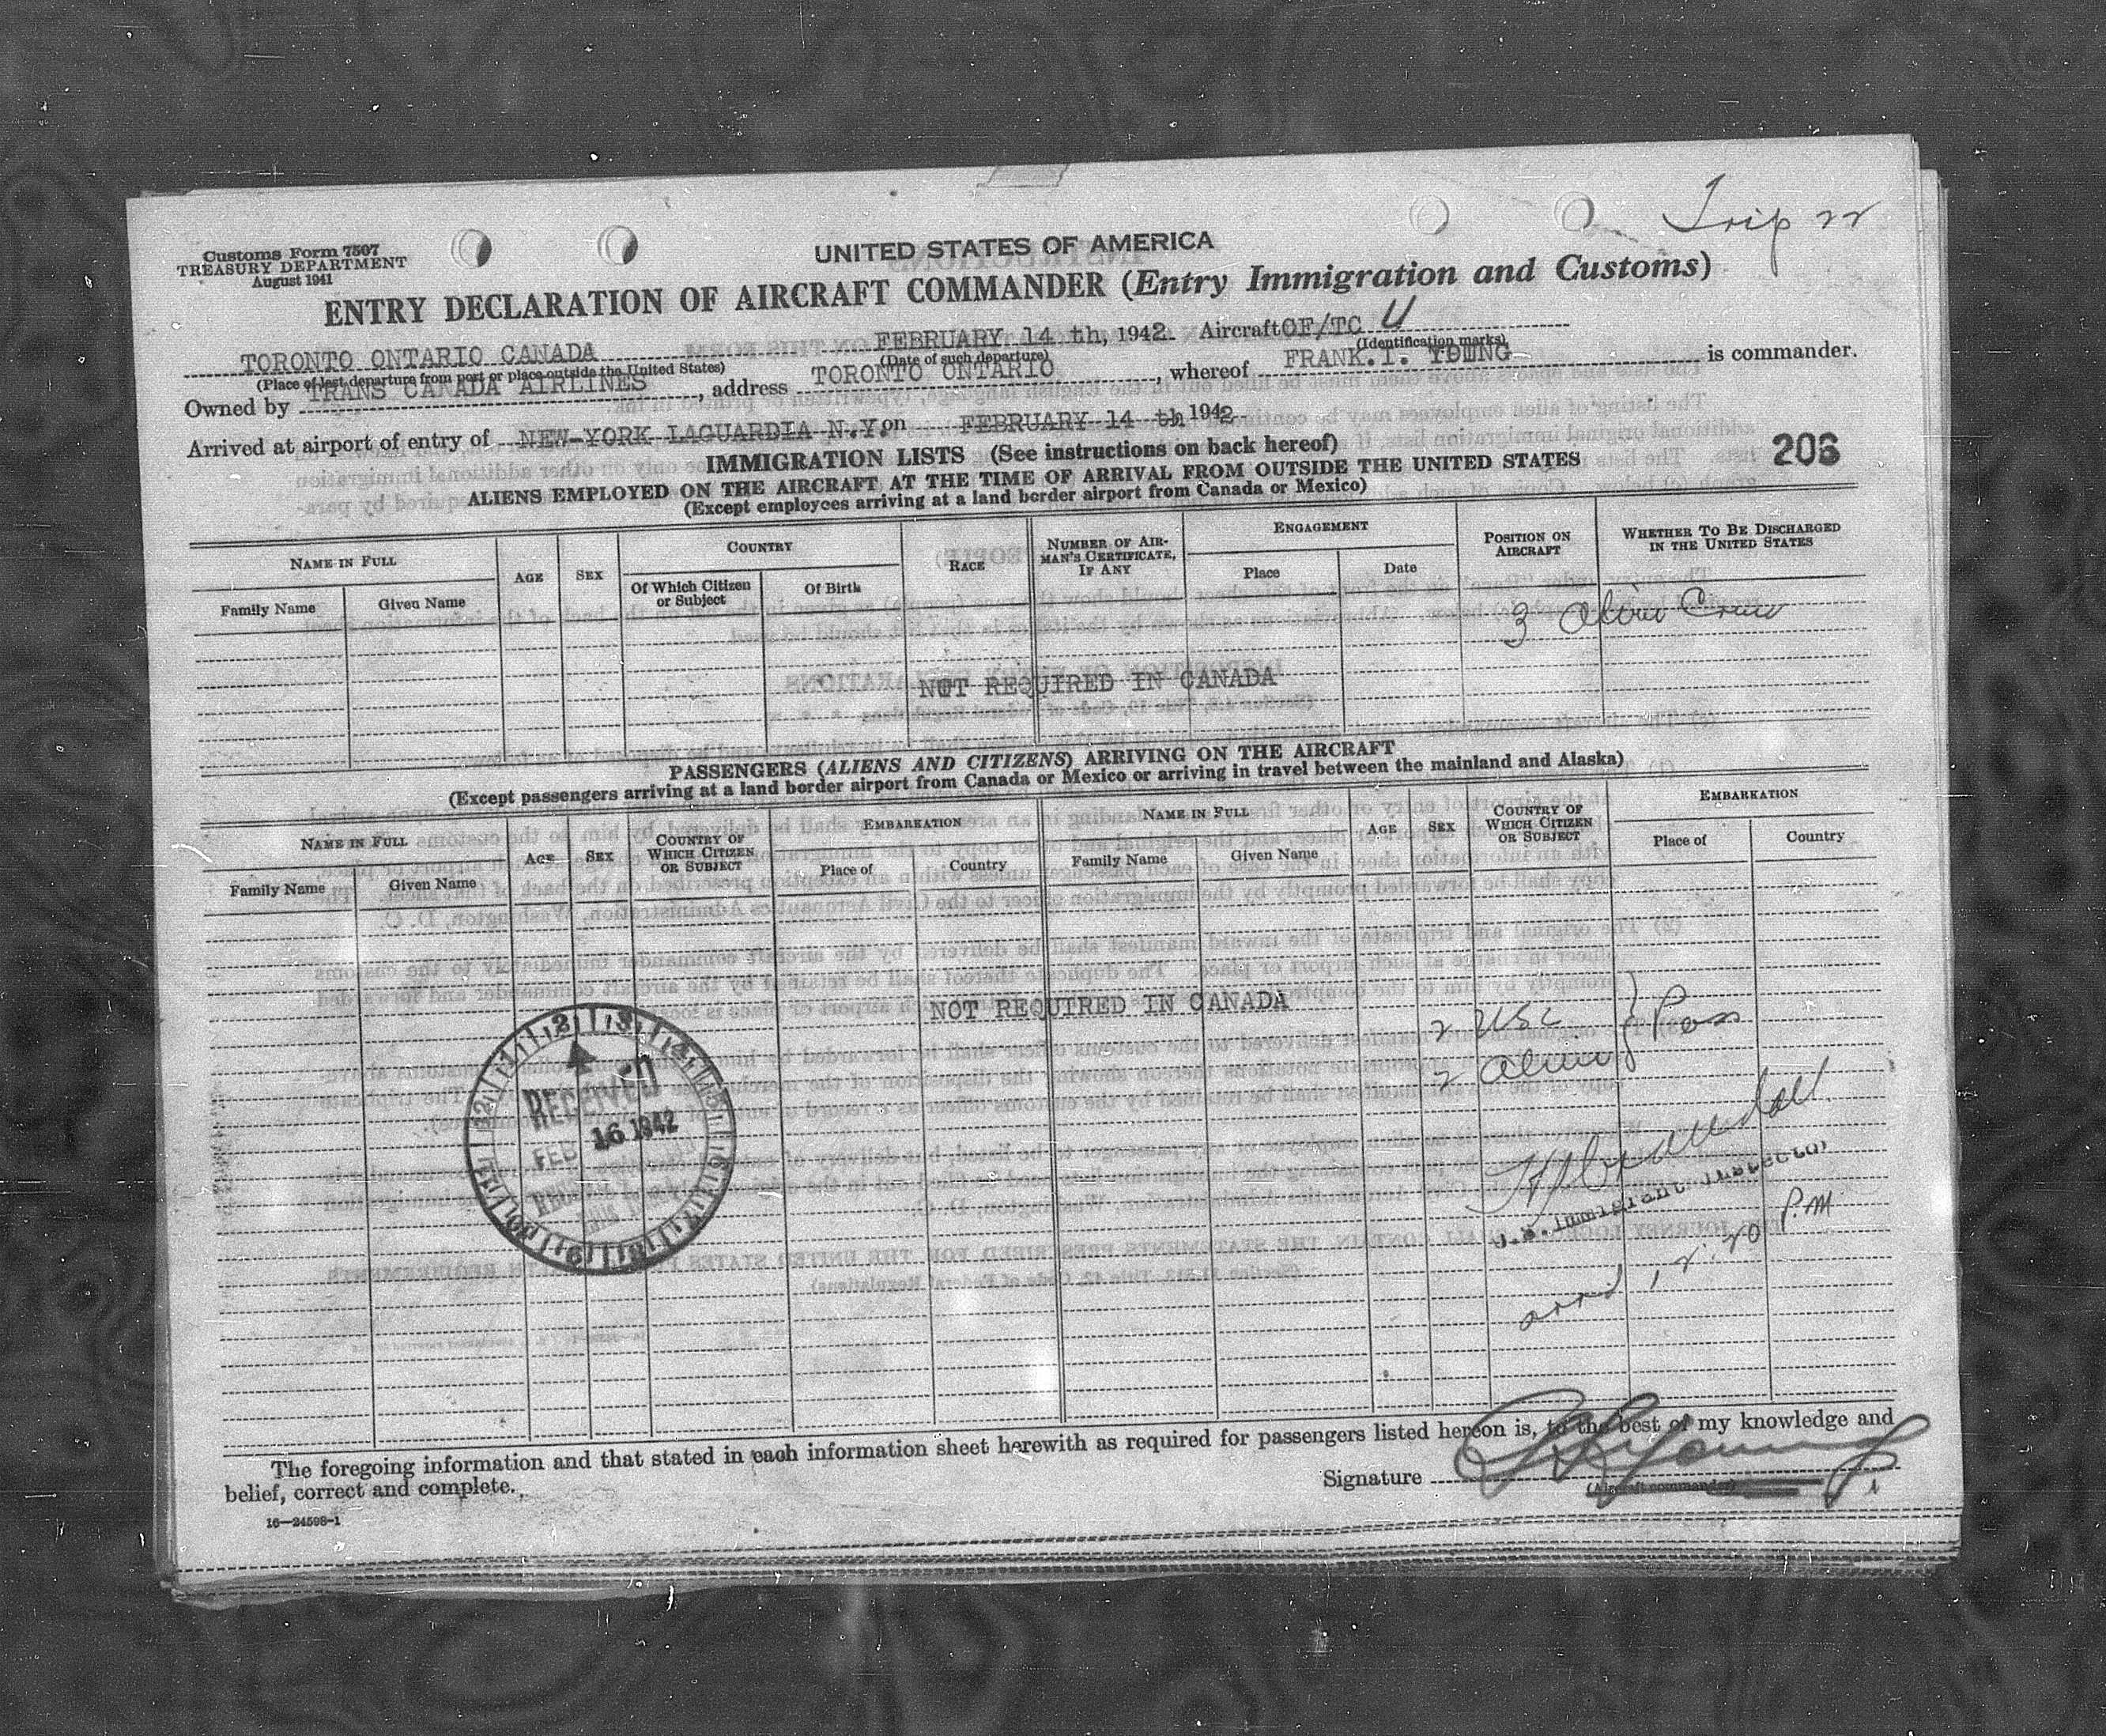 Trip 22
Customs Form 7507
TREASURY DEPARTMENT
August 1941
UNITED STATES OF AMERICA
ENTRY DECLARATION OF AIRCRAFT COMMANDER (Entry Immigration and Customs)
TORONTO ONTARIO CANADA FEBRUARY 14 th, 1942 Aircraft CF/TC U
(Place of last departure from port or place outside the United States) (Date of such departure) (Identification marks)
Owned by TRANS CANADA AIRLINES, address TORONTO ONTARIO, whereof FRANK.I. YOUNG is commander.
Arrived at airport of entry of NEW-YORK LAGUARDIA N.Y. on FEBRUARY 14 th 1942
IMMIGRATION LISTS (See instructions on back hereof)
206
ALIENS EMPLOYED ON THE AIRCRAFT AT THE TIME OF ARRIVAL FROM OUTSIDE THE UNITED STATES
(Except employees arriving at a land border airport from Canada or Mexico)
NAME IN FULL AGE SEX COUNTRY RACE NUMBER OF AIRMAN'S CERTIFICATE, IF ANY ENGAGEMENT POSITION ON AIRCRAFT WHETHER TO BE DISCHARGED IN THE UNITED STATES
Family Name Given Name Of Which Citizen or Subject Of Birth Place Date
3 Alien Crew
NOT REQUIRED IN CANADA
PASSENGERS (ALIENS AND CITIZENS) ARRIVING ON THE AIRCRAFT
(Except passengers arriving at a land border airport from Canada or Mexico or arriving in travel between the mainland and Alaska)
NAME IN FULL AGE SEX COUNTRY OF WHICH CITIZEN OR SUBJECT EMBARKATION NAME IN FULL AGE SEX COUNTRY OF WHICH CITIZEN OR SUBJECT EMBARKATION
Family Name Given Name Place of Country Family Name Given Name Place of Country
NOT REQUIRED IN CANADA
2 USC
2 Aliens } Pass
RECEIVED
FEB 16 1942
U.S. Immigrant Inspector
arrd, 2:20 P.M
The foregoing information and that stated in each information sheet herewith as required for passengers listed hereon is, to the best of my knowledge and
belief, correct and complete.
Signature
(Aircraft commander)
16—24598-1